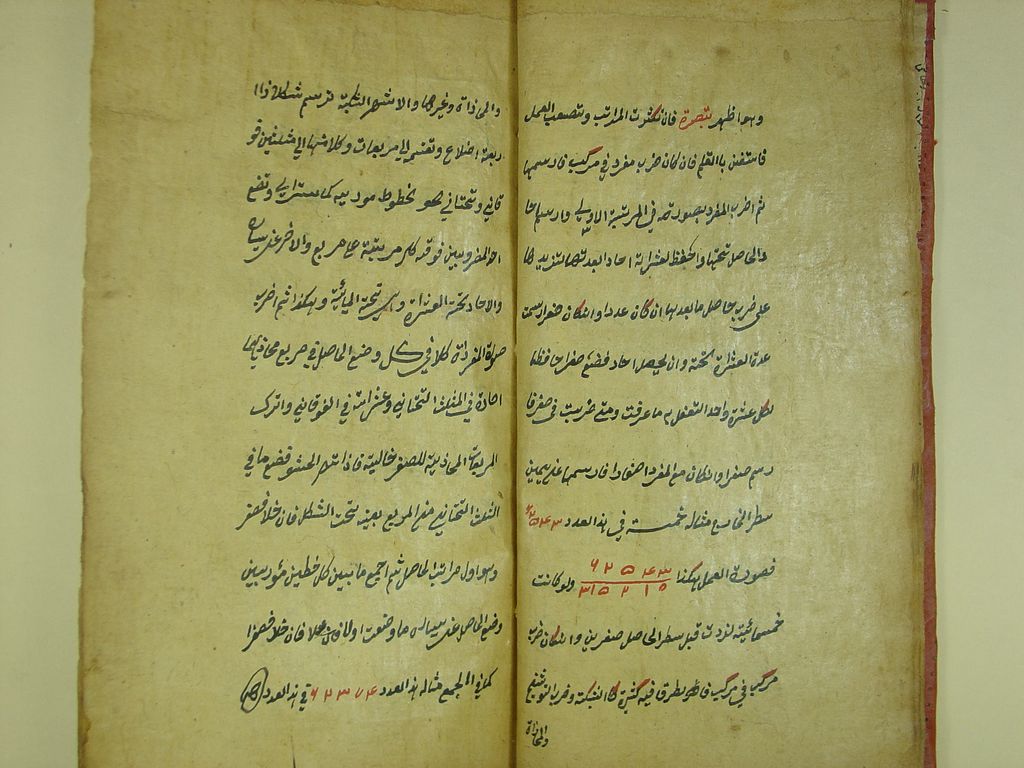 وهو اظهر تبصرة فان تكثرت المراتب وتصعب العمل
فاستعن بالقلم فان كان ضرب مفرد في مركب فارسمهما
ثم اضرب المفرد بصورته في المرتبة الاولى وارسم احاد
الحاصل تحتها واحفظ لعشراته احادا بعدتها لتزيدها
على ضرب حاصل ما بعدها ان كان عددا وان كان صفرا رسمت
عدة العشرات تحته وان لم يحصل احاد فضع صفرا حافظا
لكل عشرة واحدا لتفعل به ما عرفت ومتى ضربت في صفر فا
رسم صفرا وان كان مع المفرد اصفار فارسمها عن يمين
سطر الخارج مثاله خمسة في هذا العدد ٦٢٥٤٣
فصورة العمل هكذا ٦٢٥٤٣ ٣١٢٧١٥ ولو كانت
خمسمائة لزدت قبل سطر الحاصل صفرين وان كان ضرب
مركب في مركب فالطرق فيه كثيرة كالشبكة وضرب التوشيح
والمحاذاة
والمحاذاة وغيرها والاشهر الشبكة ترسم شكلا ذا ا
ربعة اضلاع وتقسم الى مربعات وكلا منها الى مثلثين فو
قاني وتحتاني بخطوط موربة كما سترى وتضع
احد المضروبين فوقه كل مرتبة على مربع والاخر عن يساره
والاحاد تحت العشرات وهي تحت المئات وهكذا ثم اضرب
صورة المفردات كلا في كل وضع الحاصل في مربع محاذيهما
احاده في المثلث التحتاني وعشراته في الفوقاني واترك
المربعات المحاذية للصفر خالية فاذا تم الحشو فضع ما في
المثلث التحتاني من المربع بعينه تحت الشكل فان خلا فصفر
وهو اول مراتب الحاصل ثم اجمع ما بين كل خطين موربين
وضع الحاصل عن يسار ما وضعت اولا فان خلا فصفرا
كما في الجمع مثاله هذا العدد ٦٢٣٧٤ في هذا العدد